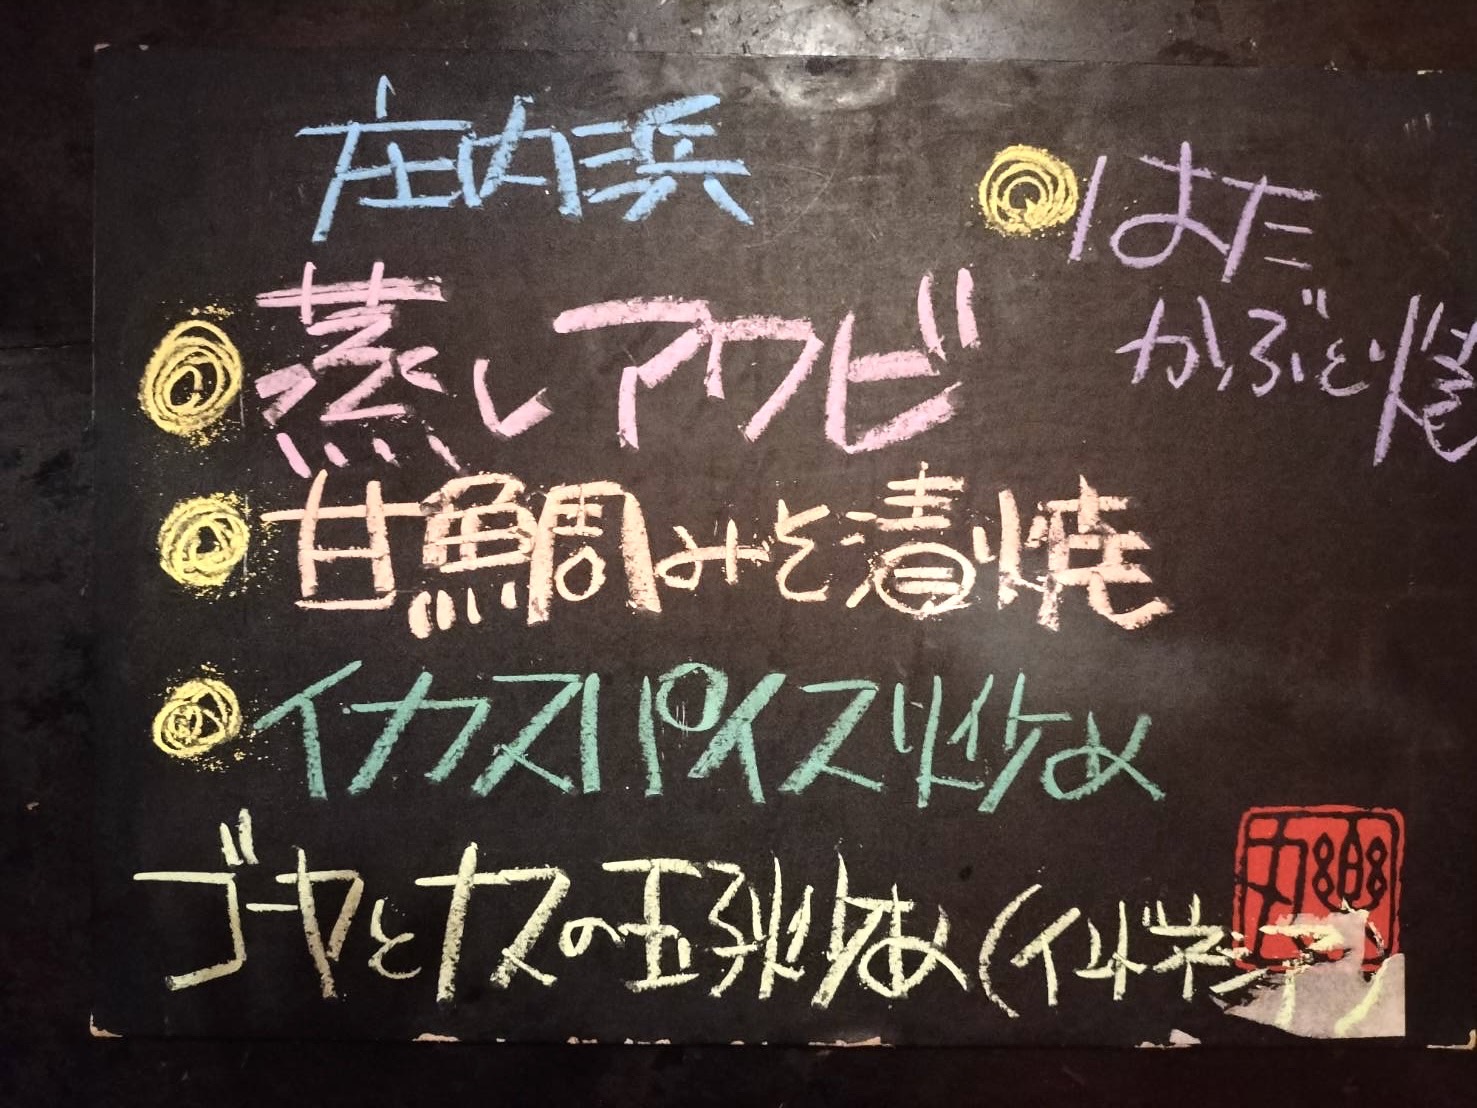 庄内浜
蒸しアワビ
甘鯛みそ漬焼
イカスパイス炒め
ゴーヤとナスの五 炒め(インドネシア)
はた
かぶと焼